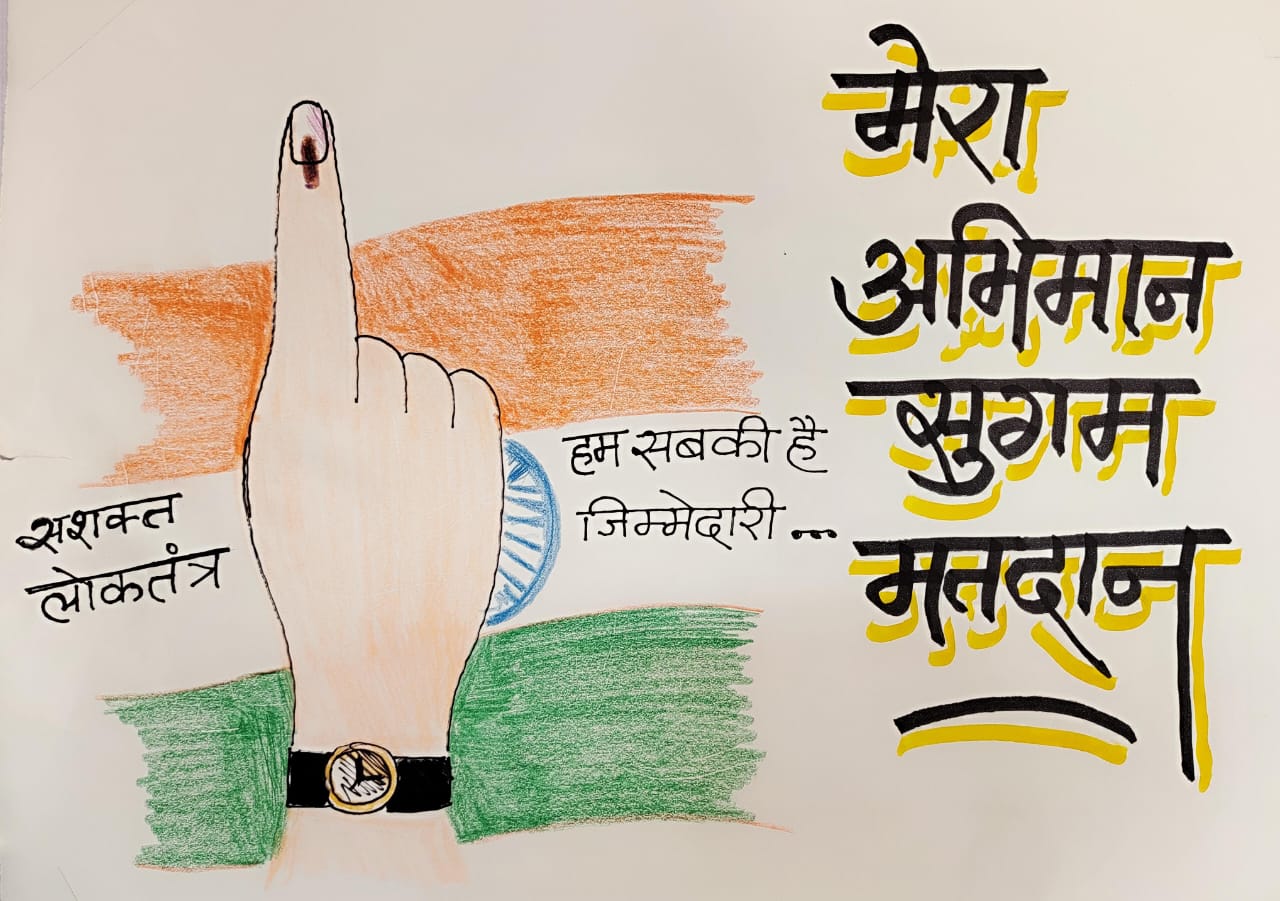 मेरा
अभिमान
सुगम
मतदान
सशक्त
लोकतंत्र
हम सबकी है
जिम्मेदारी ...